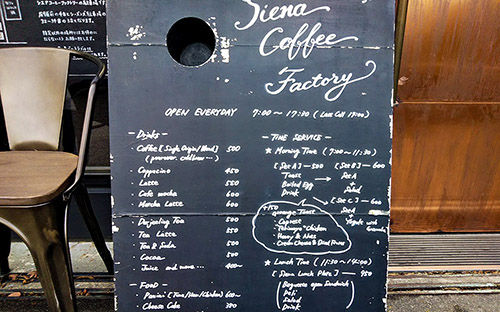 Siena
Coffee
Factory
OPEN EVERYDAY 7:00〜17:30 (Last Call 17:00)
- Drinks -
・Coffee [Single Origin/Blend] 500
・Cappccino 450
・Latte 550
・Cafe mocha 600
・Matcha Latte 600
・Darjeeling Tea 500
・Tea Latte 550
・Tea & Soda 500
・Cocoa 500
・Juice and more... 400〜
- FOOD -
・Panini (Tuna/Ham/Chicken) 600〜
・Cheese Cake 350
- TIME SERVICE -
★ Morning Time (7:00〜11:30)
[Set A] — 500
Toast
Boiled Egg
Drink
[Set B] — 600
Set A
Salad
[Set C] — 600
Yogurt and
+150
arrange Toast
・Caprese
・Teriyaki Chicken
・Honey & Nuts
・Cream Cheese & Dried Prunes
★ Lunch Time (11:30〜14:00)
[Siena Lunch Plate] — 950
Baguette open Sandwich
Deli
Salad
Drink